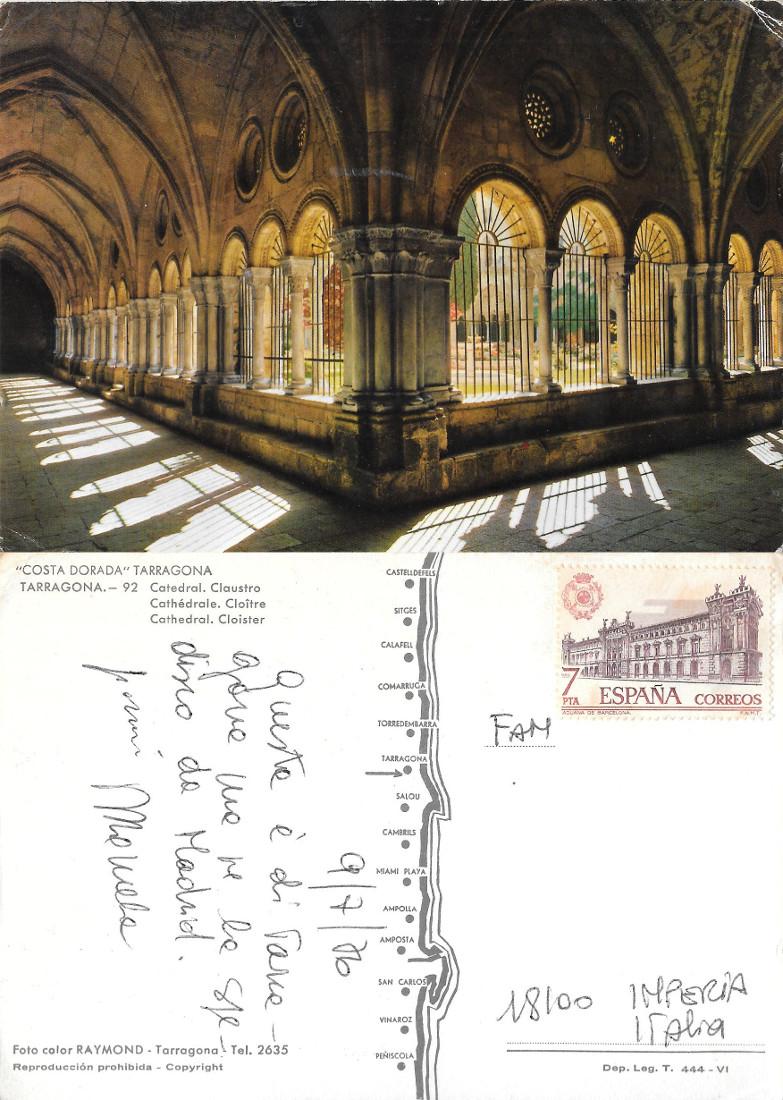 "COSTA DORADA" TARRAGONA
TARRAGONA.— 92 Catedral. Claustro
Cathédrale. Cloître
Cathedral. Cloister
9/7/76
Questa è di Tarra-
gona ma ve la spe-
disco da Madrid.
Manuela
CASTELLDEFELS
SITGES
CALAFELL
COMARRUGA
TORREDEMBARRA
TARRAGONA
SALOU
CAMBRILS
MIAMI PLAYA
AMPOLLA
AMPOSTA
SAN CARLOS
VINAROZ
PEÑISCOLA
7 PTA
ESPAÑA CORREOS
ADUANA DE BARCELONA
F.N.M.T.
FAM
18100 IMPERIA
ITALIA
Foto color RAYMOND - Tarragona - Tel. 2635
Reproducción prohibida - Copyright
Dep. Leg. T. 444 - VI